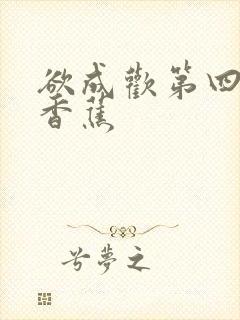 欲成歡第四
香蕉
兮夢之